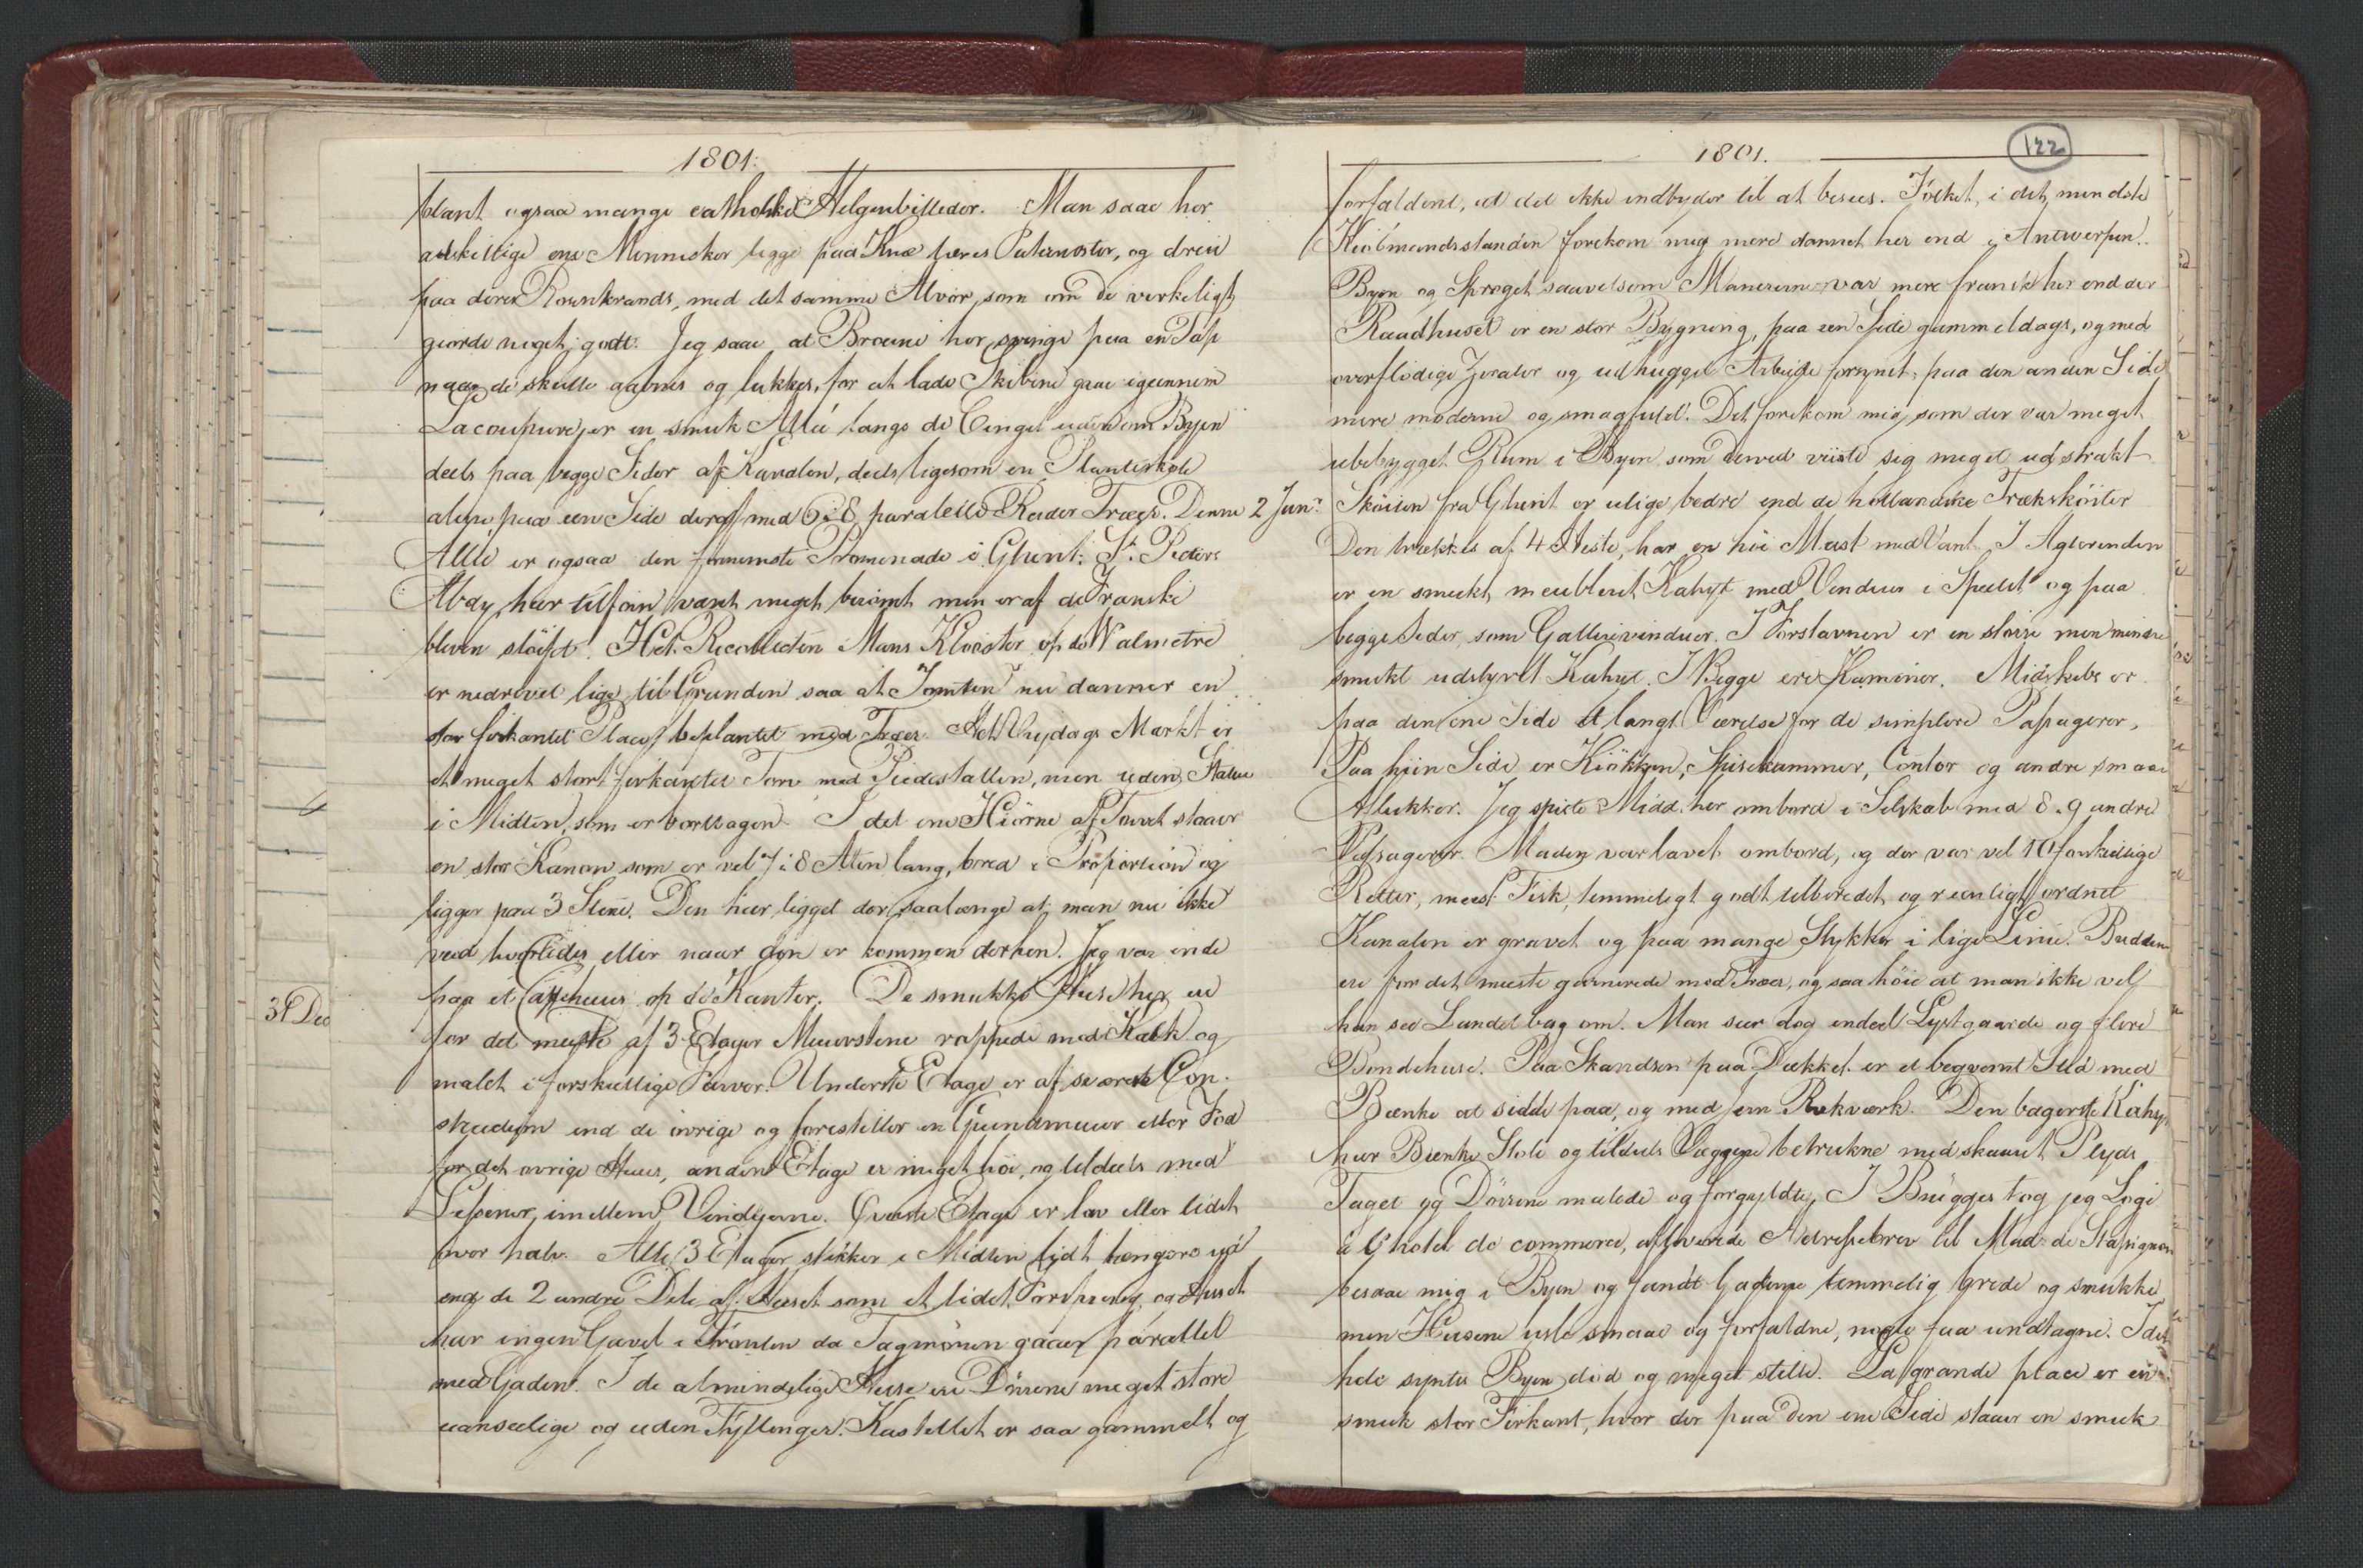 1801.
blant ogsaa mange catholske Helgenbilleder. Man saae her
adskillige ene Mennisker ligge paa Knæ læres Paternoster, og dreie
paa deres Rosenkrands, med det samme Alvor, som om de virkeligt
giorde noget godt. Jeg saae at Broerne her svinge paa en Tap
naar de skulle aabnes og lukkes, for at lade Skibene gaae igiennem
Lacoupure, er en smuk Allé langs de Cingel udenom Byen
deels paa begge Sider af Kanalen, deels ligesom en Planteskole
alene paa een Side deraf med 6 à 8 paralelle Rader Træer. Denne
Allé er ogsaa den fornemste Promenade i Ghent. St. Peders
Abdy har tilforn været meget berömt men er af de Franske
bleven slöifet. Het Recolleten Mans Klooster op de Walmetre
er nedrevet lige til Grunden saa at Tomten nu danner en
stor firkantet Place beplantet med Træer. Het Vrydags Markt er
et meget stort firkantet Torv med Piedestallen, men uden Statue
i Midten, som er borttagen. I det ene Hiörne af Torvet staaer
en stor Kanon som er vel 7 à 8 Alen lang, bred i Proportion og
ligger paa 3 Stene. Den har ligget der saalænge at man nu ikke
veed hvorledes eller naar den er kommen derhen. Jeg var inde
paa et Caffehuus op de Kanter. De smukke Huse her ere
31 Dec
for det meste af 3 Etager Muurstene rappede med Kalk og
malet i forskiellige Farver. Underste Etage er af sværere Con-
struction end de övrige og forestiller en Grundmuur eller Fod
for det övrige Huus, anden Etage er meget höi, og tildeels med
Lesener imellem Vinduerne. Överste Etage er lav eller lidt
over halv. Alle 3 Etager stikker i Midten lidt længere ud
end de 2 andre Dele af Huset som et lidet Forspring, og Huset
har ingen Gavel i Fronten da Tagmönen gaaer parallel
med Gaden. I de almindelige Huse ere Dörrene meget store
uanseelige og uden Fyllinger. Kastellet er saa gammelt og
1801.
122
forfaldent, at det ikke indbyder til at besees. Folket, i det mindste
Kiöbmandsstanden forekom mig mere dannet her end i Antwerpen.
Byen og Sproget saavelsom Manererne var mere fransk her end der
Raadhuset er en stor Bygning, paa een Side gammeldags, og med
overflödige Zirater og udhugget Arbeide forsynet, paa den anden Side
mere moderne og smagfuld. Det forekom mig, som der var meget
ubebygget Rum i Byen, som derved viiste sig meget udstrakt
2 Janr.
Sköiten fra Ghent er ulige bedre end de hollandske Træksköiter
Den trækkes af 4 Heste, har en höi Mast med Vant. I Agterenden
er en smukt meubleret Kahyt med Vinduer i Speilet og paa
begge Sider, som Gallerivinduer. I Forstavnen er en större men mindre
smukt udstyret Kahyt. I Begge ere Kaminer. Midskibs er
paa den ene Side et langt Værelse for de simplere Passagerer,
Paa hiin Side er Kiökken, Spisekammer, Contor og andre smaa
Aflukker. Jeg spiste Midd. her ombord i Selskab med 8-9 andre
Passagerer. Maden var lavet ombord, og der var vel 10 forskiellige
Retter, meest Fisk, temmeligt godt tilberedet, og reenligt ordnet
Kanalen er gravet og paa mange Stykker i lige Linie. Bredden
ere for det meste garnerede med Træer, og saa höie at man ikke vel
kan see Landet bag om. Man seer dog endeel Lystgaarde og flere
Böndehuse. Paa Skandsen paa Dækket er et beqvemt Sted med
Bænke at sidde paa, og med jern Rækværk. Den bagerste Kahyt
har Bænke, Stole og tildeels Væggene betrukne med skaaret Plyds
Taget og Dörrene malede og forgyldte. I Brügges tog jeg Logi
à L'hotel de commerce, afleverede Adressebrev til Mad. de Stapignon
besaae mig i Byen og fandt Gaderne temmelig brede og smukke
men Husene usle smaae og forfaldne, nogle faa undtagne. I det
hele syntes Byen död og meget stille. La grande place er en
smuk stor Firkant, hvor der paa den ene Side staaer en smuk